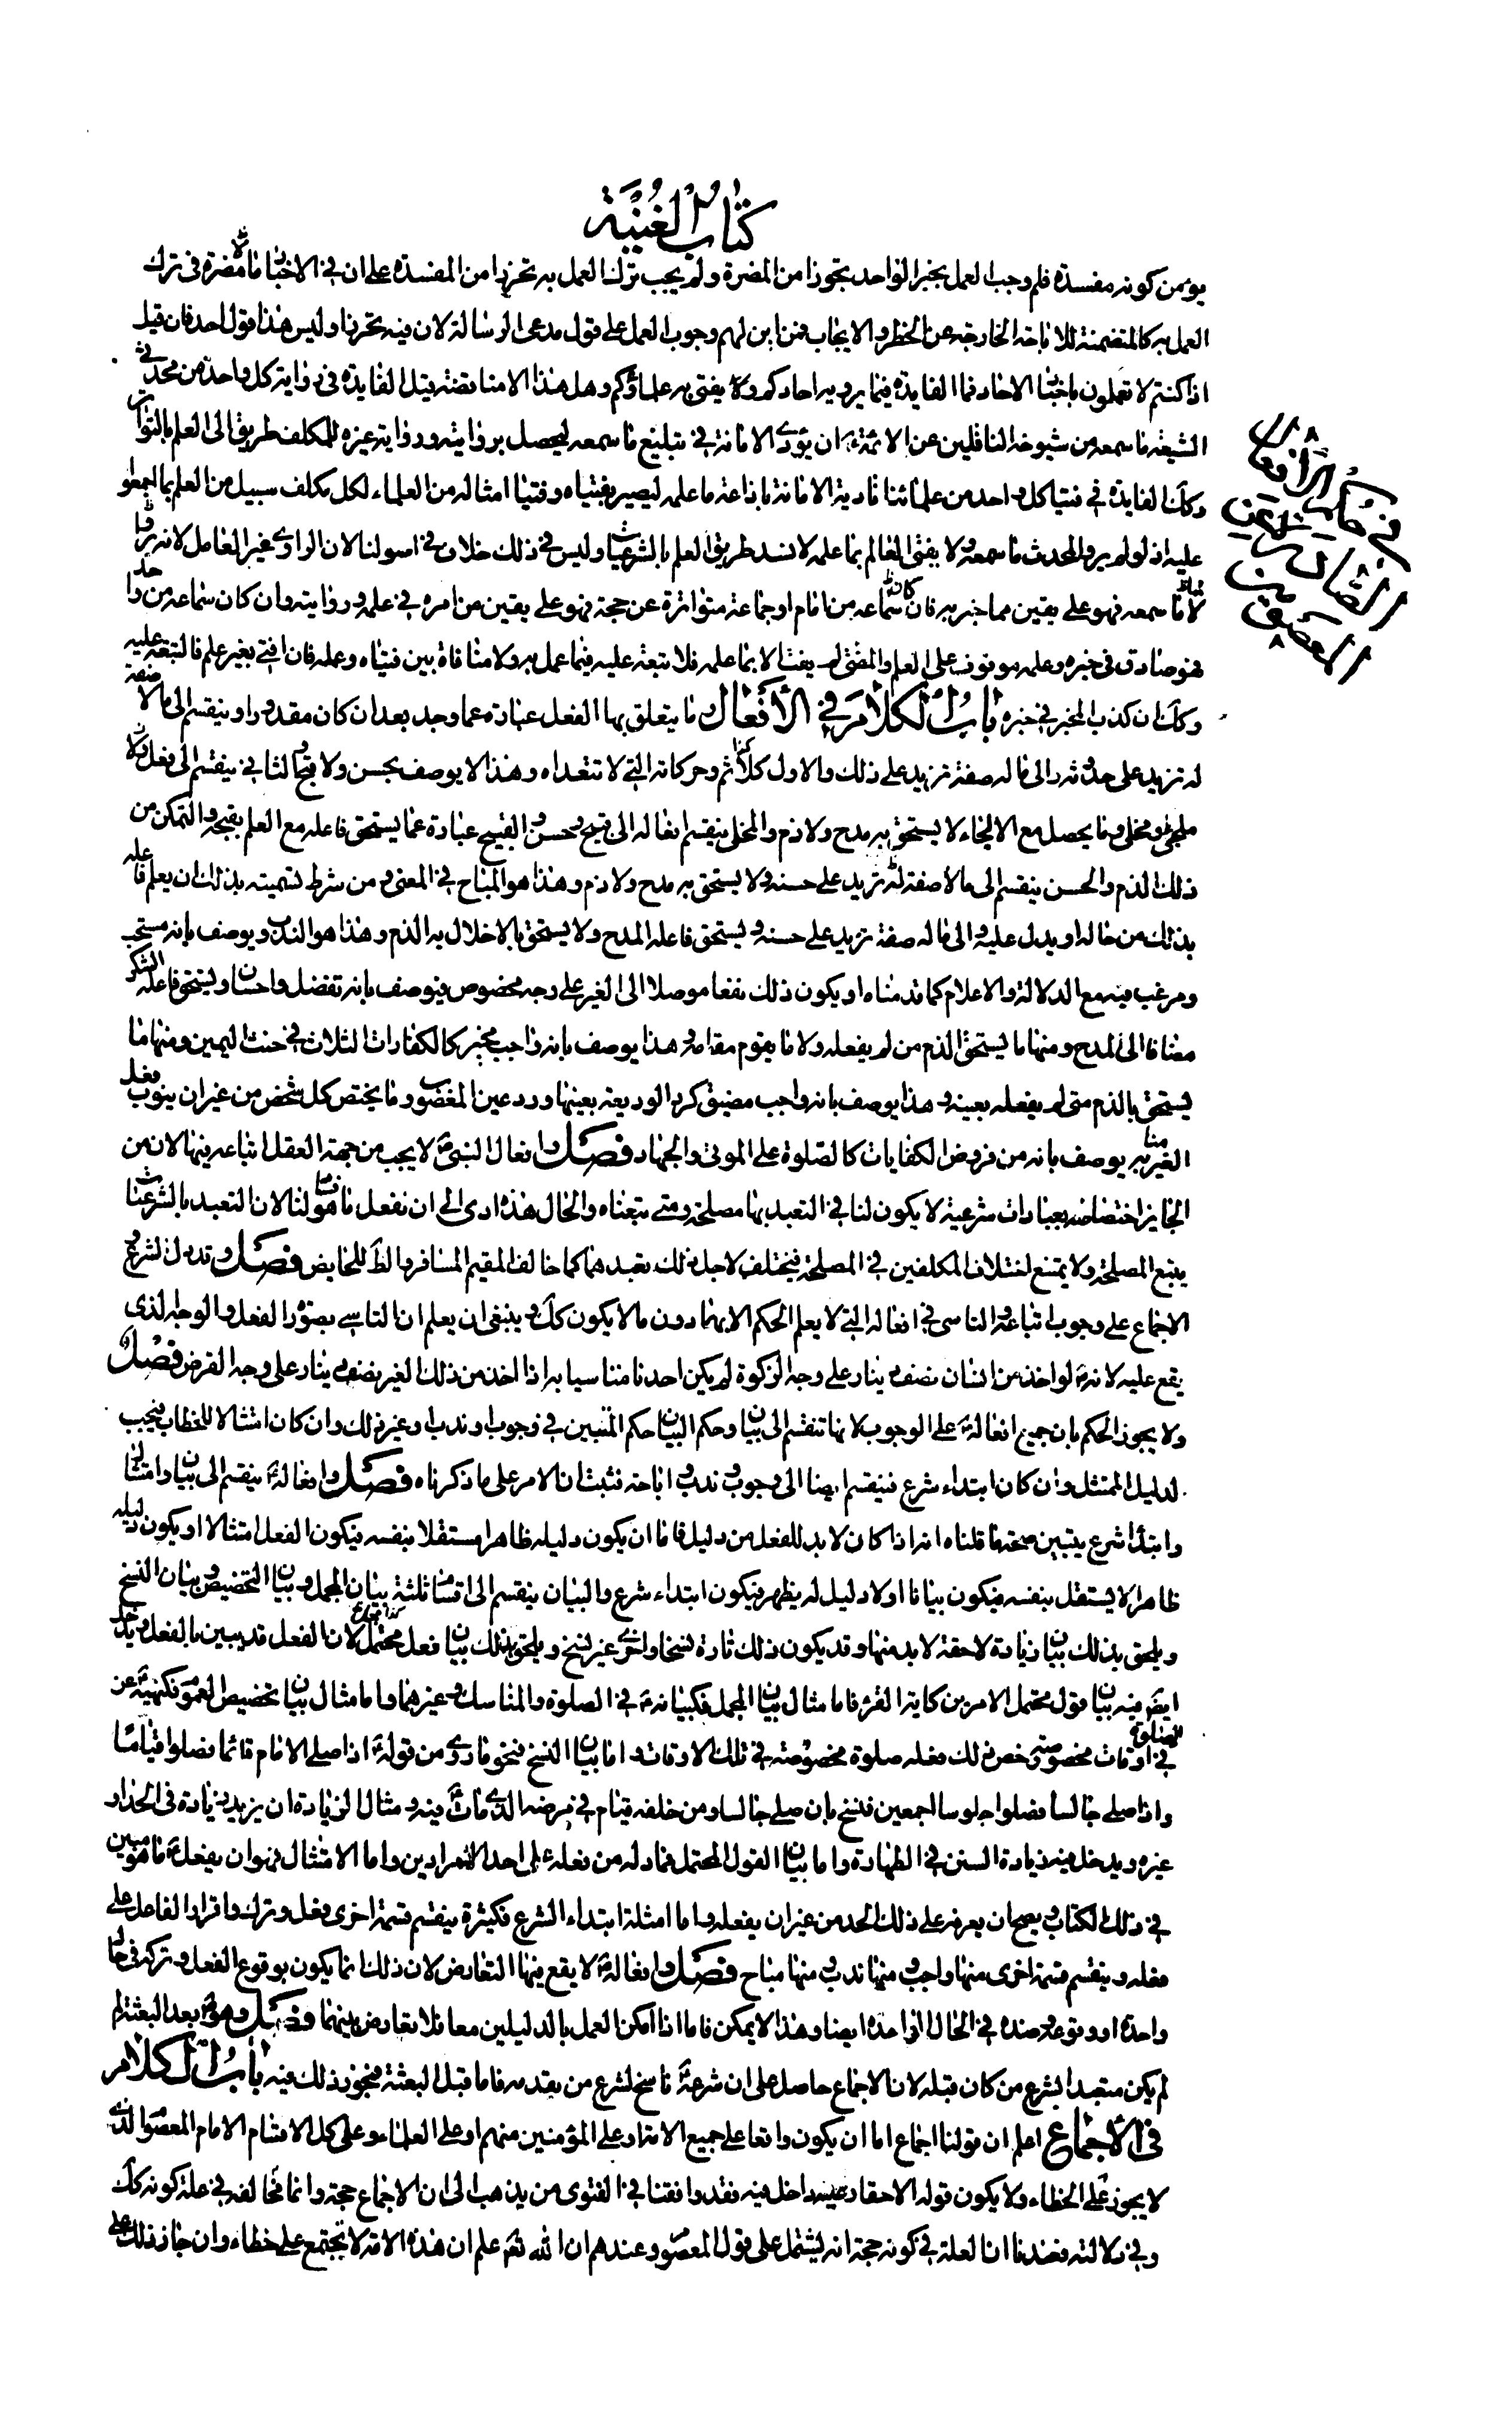 كتاب الغنية
يؤمن كونه مفسدة فلم وجب العمل بخبر الواحد تجوزا من المضرة ولم يجب ترك العمل به تحرزا من المفسدة على ان في الاخبار ما لا مضرة في ترك
العمل به كالمتضمنة للاباحة الخارجة عن الخطر والايجاب فمن اين لهم وجوب العمل على قول مدعى الرسالة لان فيه تحرزا وليس هذا قول احد فان قيل
اذا كنتم لا تعملون باخبار الاحاد فما الفايدة فيما يرويه احادكم ولا يفتى به علماؤكم وهل هذا الا مناقضة قيل الفايدة في رواية كل واحد من محدثي
الشيعة ما سمعه من شيوخه الناقلين عن الائمة ع ان يؤدى الامانة في تبليغ ما سمعه ليحصل بروايته ورواية غيره للمكلف طريق الى العلم بالتواتر
وكك الفايدة في فتيا كل واحد من علمائنا تادية الامانة باذاعة ما علمه ليصير بفتياه وفتيا امثاله من العلماء لكل مكلف سبيل من العلم بما اجمعوا
عليه اذ لو لم يرو المحدث ما سمعه ولا يفتى العالم بما علمه لانسد طريق العلم بالشرعيات وليس في ذلك خلاف في اصولنا لان الراوى غير العامل لانه
لا ما سمعه فهو على يقين مما خبر به فان كان سماعه من امام او جماعة متواترة عن حجة فهو على يقين من امره في علمه وروايته وان كان سماعه من واحد
فهو صادق في خبره وعلمه موقوف على العلم والمفتى لم يفت الا بما علمه فلا تبعة عليه فيما عمل به ولا منافاة بين فتياه وعمله فان افتى بغير علم فالتبعة عليه
وكك ان كذب المخبر في خبره باب الكلام في الافعال ما يتعلق بها الفعل عبارة عما وجد بعد ان كان مقدورا وينقسم الى ما لا صفة
له تزيد على حدوثه والى ما له صفة تزيد على ذلك والاول كلام النائم وحركاته التي لا تتعداه وهذا لا يوصف بحسن ولا قبح والثاني ينقسم الى فعل
ملجئ ومخلى وما يحصل مع الالجاء لا يستحق به مدح ولا ذم والمخلى ينقسم افعاله الى قبيح وحسن والقبيح عبارة عما يستحق فاعله مع العلم بقبحه والتمكن من
ذلك الذم والحسن ينقسم الى ما لا صفة له تزيد على حسنه ولا يستحق به مدح ولا ذم وهذا هو المباح في المعنى ومن شرط تسميته بذلك ان يعلم فاعله
بذلك من حاله او يدل عليه والى ما له صفة تزيد على حسنه ويستحق فاعله المدح ولا يستحق بالاخلال به الذم وهذا هو الندب ويوصف بانه مستحب
ومرغب فيه مع الدلالة والاعلام كما قدمناه او يكون ذلك نفعا موصلا الى الغير على وجه مخصوص فيوصف بانه تفضل واحسان ويستحق فاعله الشكر
مضافا الى المدح ومنها ما يستحق الذم من لم يفعله ولا ما يقوم مقامه وهذا يوصف بانه واجب مخير كالكفارات الثلاث في حنث اليمين ومنها ما
يستحق بالذم متى لم يفعله بعينه وهذا يوصف بانه واجب مضيق كرد الوديعة بعينها ورد عين المغصوب وما يختص كل شخص من غير ان ينوب فعل
الغير منا به يوصف بانه من فروض الكفايات كالصلوة على الموتى والجهاد فصل وافعال النبي ص لا يجب من جهة العقل اتباعه فيها لان من
الجايز اختصاصه بعبادات شرعية لا يكون لنا في التعبد بها مصلحة ومتى تبعناه والحال هذه ادى الى ان نفعل ما هو مفسدة لنا لان التعبد بالشرعيات
يتبع المصلحة ولا يمتنع اختلاف المكلفين في المصلحة فيختلف لاجل ذلك تعبدهما كما خالف المقيم المسافر والطاهر للحايض فصل وقد دل الشرع و
الاجماع على وجوب اتباعه والتاسى في افعاله التي لا يعلم الحكم الا بها دون ما لا يكون كك وينبغى ان يعلم ان التاسى بصورة الفعل والوجه الذى
يقع عليه لانه ص لو اخذ من انسان نصف دينار على وجه الزكوة لم يكن احدنا متاسيا به اذا اخذ من ذلك الغير نصف دينار على وجه القرض فصل
ولا يجوز الحكم بان جميع افعاله ص على الوجوب لانها تنقسم الى بيان وحكم البيان حكم المتبين في وجوب او ندب او غير ذلك وان كان امتثالا للخطاب فيجب
لدليل الممتثل وان كان ابتداء شرع فينقسم ايضا الى وجوب وندب واباحة فثبت ان الامر على ما ذكرناه فصل وافعاله ص ينقسم الى بيان وامتثال
وابتداء شرع يتبين صحة ما قلناه انه اذا كان لا بد للفعل من دليل فاما ان يكون دليله ظاهرا مستقلا بنفسه فيكون الفعل امتثالا او يكون دليله
ظاهرا لا يستقل بنفسه فيكون بيانا او لا دليل له يظهر فيكون ابتداء شرع والبيان ينقسم الى اقسام ثلثة بيان المجمل وبيان التخصيص وبيان النسخ
ويلحق بذلك بيان زيادة لاحقة لا بد منها وقد يكون ذلك تارة نسخا واخرى غير نسخ ويلحق بذلك بيان فعل محتمل لان الفعل قد يبين بالفعل ويدخل
ايضا فيه بيان قول محتمل الامرين كاية القرء فاما مثال بيان المجمل فكبيانه ص في الصلوة والمناسك وغيرهما واما مثال بيان تخصيص العموم فكنهيه ص عن
الصلوة في اوقات مخصوصة وخص ذلك بفعله صلوة مخصوصة في تلك الاوقات واما بيان النسخ فنحو ما روى من قوله ص اذا صلى الامام قائما فصلوا قياما
واذا صلى جالسا فصلوا جلوسا اجمعين فنسخ بان صلى جالسا ومن خلفه قيام في مرضه الذى مات ص فيه ومثال الزيادة ان يزيد زيادة في الحد او
غيره ويدخل فيه زيادة السنن في الطهارة واما بيان القول المحتمل فما دله من فعله على احد المرادين واما الامتثال فهو ان يفعل ص ما هو مبين
في ذلك الكتاب ويصح ان يعرف على ذلك الحد من غير ان يفعله واما امثلة ابتداء الشرع فكثيرة ينقسم قسمة اخرى وفعل وترك واقرار الفاعل على
فعله وينقسم قسمة اخرى منها واجب ومنها ندب ومنها مباح فصل وافعاله ص لا يقع فيها التعارض لان ذلك انما يكون بوقوع الفعل وتركه في حال
واحدة او وقوعه وضده في الحال الواحدة ايضا وهذا لا يمكن فاما اذا امكن العمل بالدليلين معا فلا تعارض بينهما فصل وهو ص بعد البعثة لم
لم يكن متعبدا بشرع من كان قبله لان الاجماع حاصل على ان شرعه ص ناسخ لشرع من يقدمه فاما قبل البعثة فيجوز ذلك فيه باب الكلام
في الاجماع اعلم ان قولنا اجماع اما ان يكون واقعا على جميع الامة او على المؤمنين منهم او على العلماء وعلى كل الاقسام الامام المعصوم الذى
لا يجوز عليه الخطاء ولا يكون قوله الا حقا داخل فيه فقد وافقنا في الفتوى من يذهب الى ان الاجماع حجة وانما نخالفه في علة كونه كك
وفي دلالته فعندنا ان العلة في كونه حجة انه يشتمل على قول المعصوم وعندهم ان الله تعالى علم ان هذه الامة لا تجتمع على خطاء وان جاز ذلك على
في حكم الافعال
الصادرة عن
المعصومين